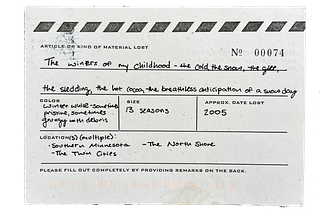 ARTICLE OR KIND OF MATERIAL LOST
Nº 00074
The winters of my childhood - the cold, the snow, the glee,
the sledding, the hot cocoa, the breathless anticipation of a snow day
COLOR
winter white - sometimes
pristine, sometimes
grungy with debris
SIZE
13 seasons
APPROX. DATE LOST
2005
LOCATION(S) (multiple):
- Southern Minnesota - The North Shore
- The Twin Cities
PLEASE FILL OUT COMPLETELY BY PROVIDING REMARKS ON THE BACK.